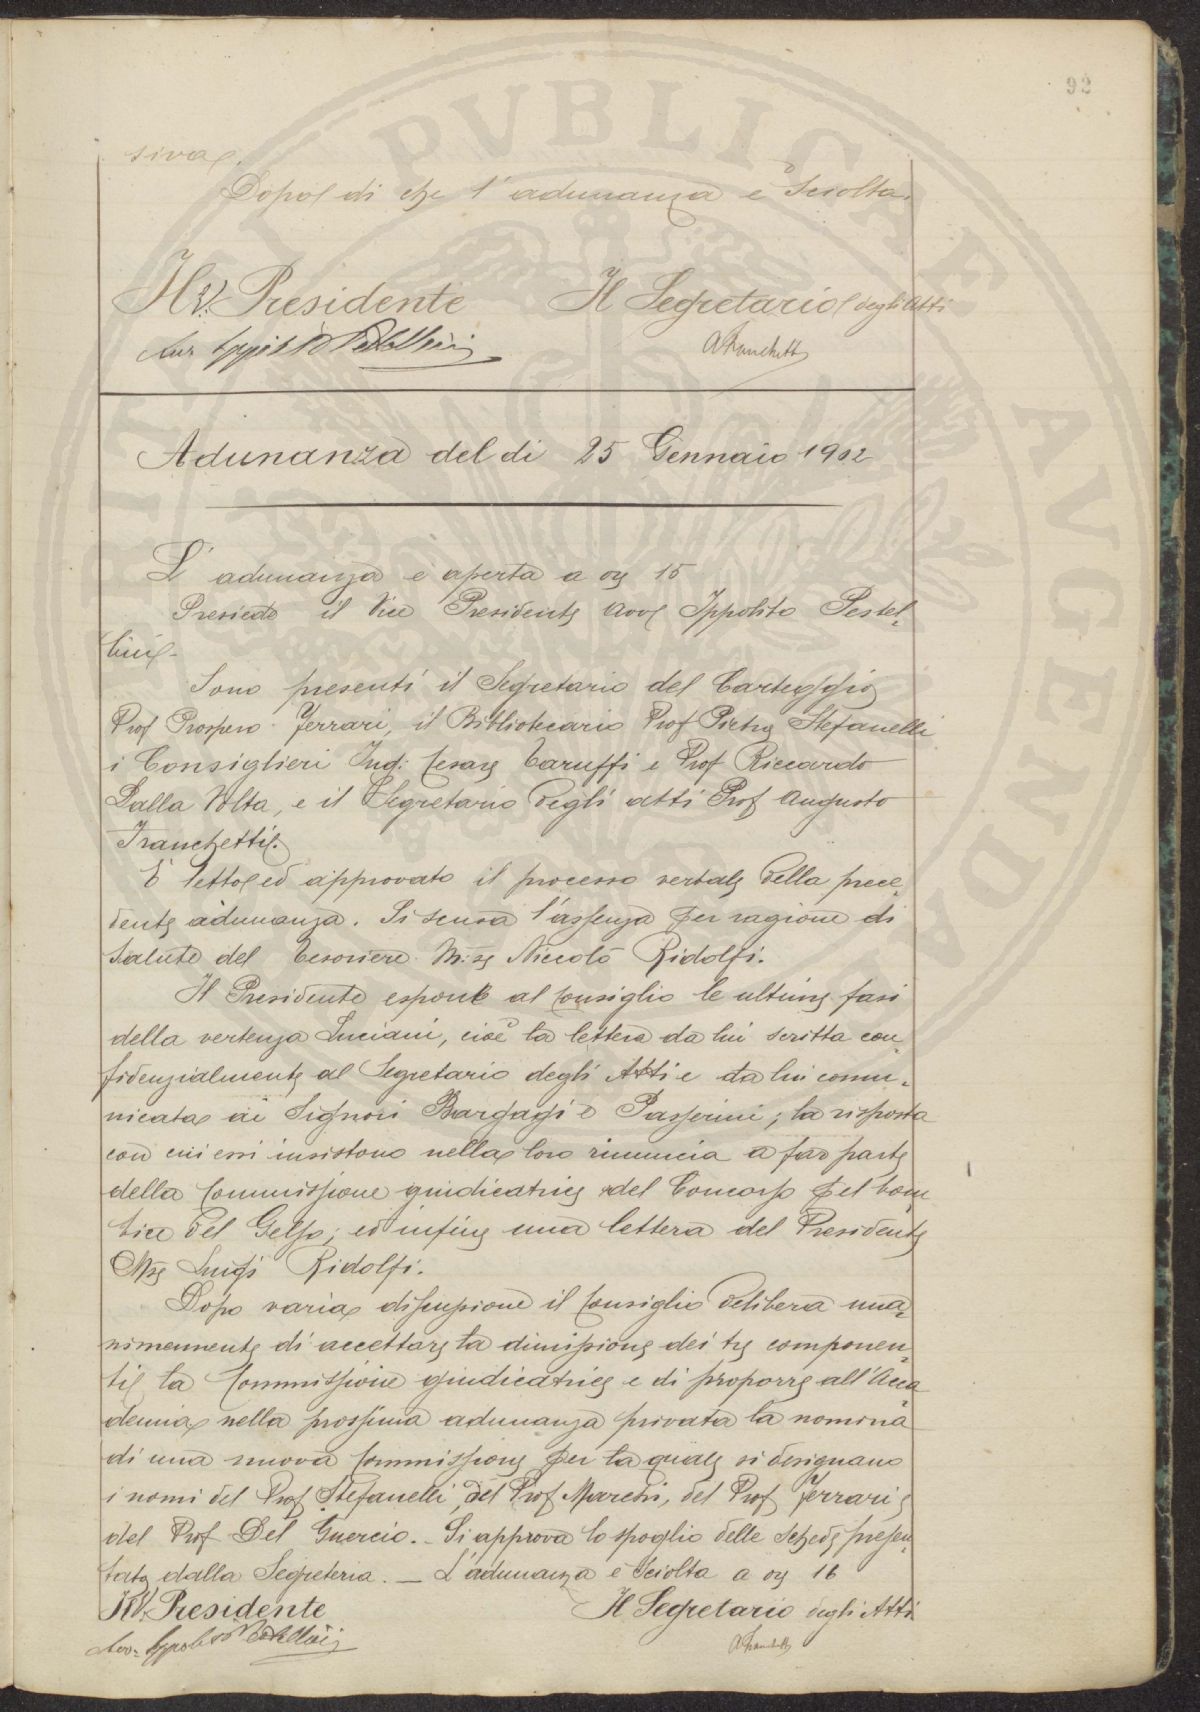 92
siva.
Dopo di che l'adunanza è sciolta.
Il V. Presidente Il Segretario degli Atti
Avv Ippolito Pestellini A Franchetti
Adunanza del di 25 Gennaio 1902
L'adunanza è aperta a ore 15
Presiede il Vice Presidente Avv Ippolito Pestel-
lini.
Sono presenti il Segretario del Carteggio
Prof Prospero Ferrari, il Bibliotecario Prof Pietro Stefanelli
i Consiglieri Ing: Cesare Taruffi e Prof Riccardo
Dalla Volta, e il Segretario degli atti Prof Augusto
Franchetti.
È letto ed approvato il processo verbale della prece-
dente adunanza. Si scusa l'assenza per ragione di
salute del Tesoriere M.se Niccolò Ridolfi.
Il Presidente espone al Consiglio le ultime fasi
della vertenza Luciani, cioè la lettera da lui scritta con-
fidenzialmente al Segretario degli Atti e da lui comu-
nicata ai Signori Bargagli e Passerini; la risposta
con cui essi insistono nella loro rinuncia a far parte
della Commissione giudicatrice del Concorso pel bom
bice del Gelso; ed infine una lettera del Presidente
Mse Luigi Ridolfi.
Dopo varia discussione il Consiglio delibera una-
nimemente di accettare la dimissione dei tre componen-
ti la Commissione giudicatrice e di proporre all'Acca-
demia nella prossima adunanza privata la nomina
di una nuova Commissione per la quale si designano
i nomi del Prof Stefanelli, del Prof Marchi, del Prof Ferrari e
del Prof Del Guercio. - Si approva lo spoglio delle schede presen-
tato dalla Segreteria. — L'adunanza è sciolta a ore 16
Il V. Presidente Il Segretario degli Atti
Avv. Ippolito Pestellini A Franchetti
PVBLICAE AVGENDAE